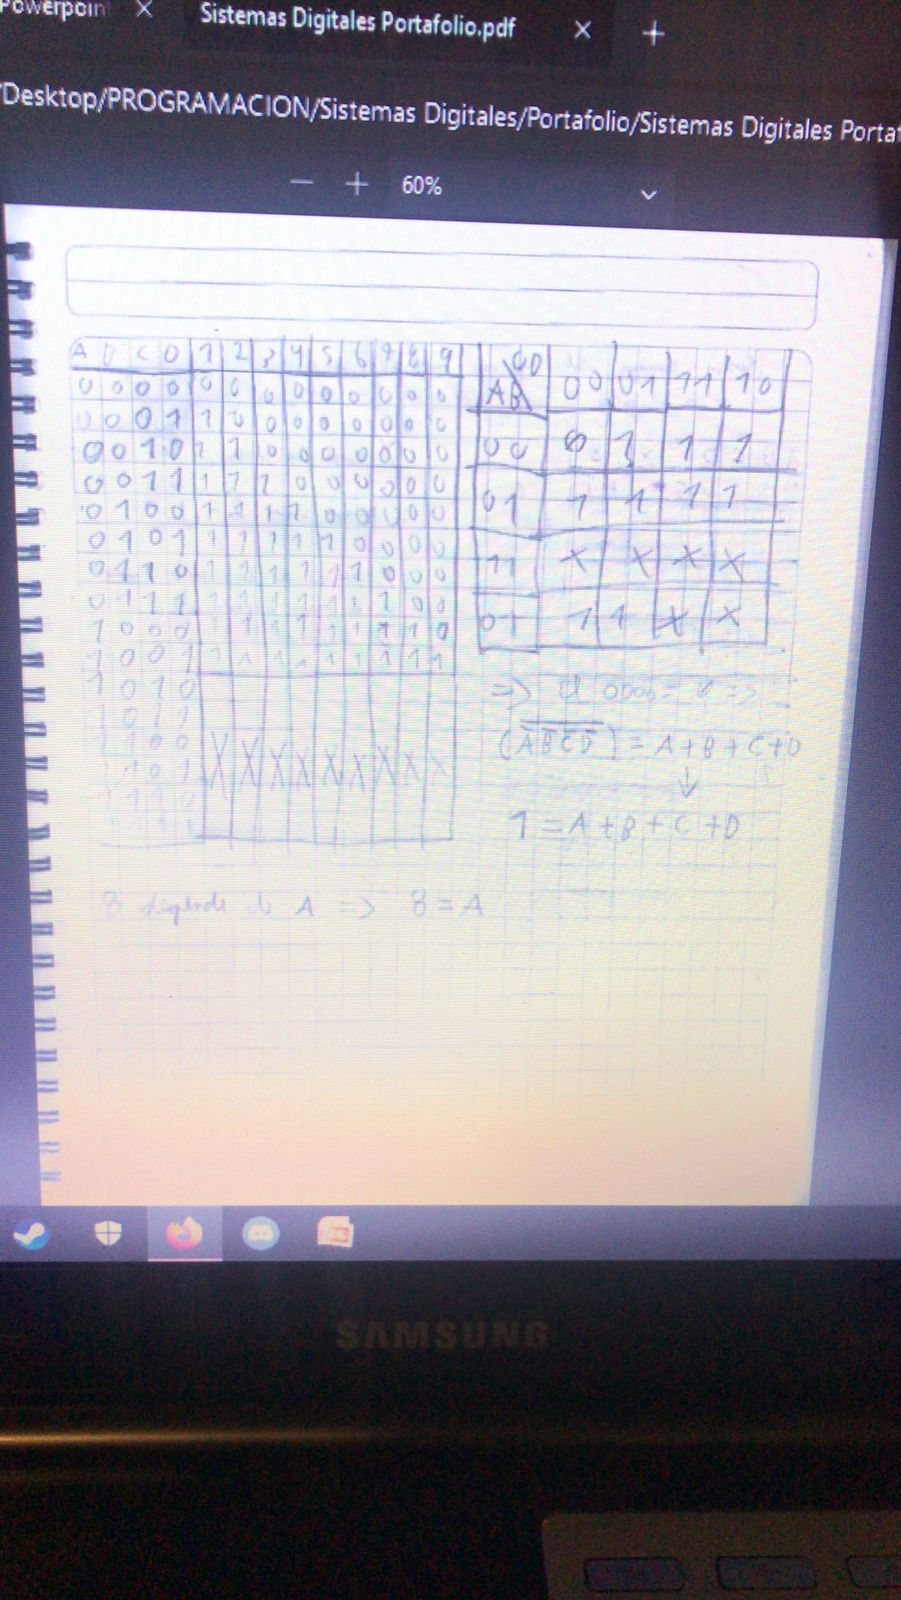 Powerpoin
Sistemas Digitales Portafolio.pdf
/Desktop/PROGRAMACION/Sistemas Digitales/Portafolio/Sistemas Digitales Portaf
60%
A B C D 1 2 3 4 5 6 7 8 9
0 0 0 0 0 0 0 0 0 0 0 0 0
0 0 0 1 1 0 0 0 0 0 0 0 0
0 0 1 0 1 1 0 0 0 0 0 0 0
0 0 1 1 1 1 1 0 0 0 0 0 0
0 1 0 0 1 1 1 1 0 0 0 0 0
0 1 0 1 1 1 1 1 1 0 0 0 0
0 1 1 0 1 1 1 1 1 1 0 0 0
0 1 1 1 1 1 1 1 1 1 1 0 0
1 0 0 0 1 1 1 1 1 1 1 1 0
1 0 0 1 1 1 1 1 1 1 1 1 1
1 0 1 0
1 0 1 1
1 1 0 0
1 1 0 1
1 1 1 0
X X X X X X X X X
CD
AB 00 01 11 10
00 0 1 1 1
01 1 1 1 1
11 X X X X
01 1 1 X X
=> 0000 = 0 =>
(A̅B̅C̅D̅)̅ = A+B+C+D
↓
1 = A+B+C+D
8 depende de A => 8 = A
SAMSUNG